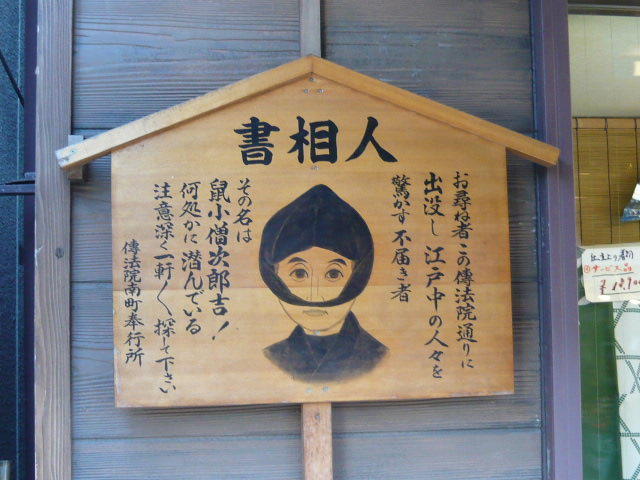 人相書
お尋ね者 この傳法院通りに
出没し 江戸中の人々を
驚かす 不届き者
その名は
鼠小僧次郎吉！
何処かに 潜んでいる
注意深く一軒〳〵探して下さい
傳法院南町奉行所
サービス品